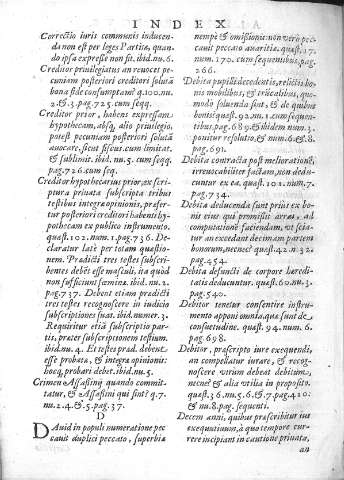 INDEX
Correctio iuris communis inducen-
da non est per leges Partitæ, quan-
do ipsa expresse non sit. ibid. nu. 6.
Creditor priuilegiatus an reuocet pe-
cuniam posteriori creditori solutã
bona fide consumptam? q. 100. nu.
2. & 3. pag. 725. cum seqq.
Creditor prior, habens expressam
hypothecam, absq; alio priuilegio,
potest pecuniam posteriori solutã
auocare, sicut fiscus. cum limitat.
& sublimit. ibid. nu. 5. cum seqq.
pag. 726. cum seq.
Creditor hypothecarius prior, ex scri-
ptura priuata subscripta tribus
testibus integræ opinionis, præfer-
tur posteriori creditori habenti hy-
pothecam ex publico instrumento.
quæst. 102. num. 1. pag. 736. De-
claratur late per totam quæstio-
nem. Prædicti tres testes subscri-
bentes debẽt esse masculi, ita quòd
non sufficiunt fœminæ. ibid. nu. 2.
pag. 737. Debent etiam prædicti
tres testes recognoscere in iudicio
subscriptiones suas. ibid. numer. 3.
Requiritur etiã subscriptio par-
tis, præter subscriptionem testium.
ibid. nu. 4. Et testes præd. debent
esse probatæ, & integræ opinionis:
hocq; probari debet. ibid. nu. 5.
Crimen Assasinij quando commit-
tatur, & Assasini qui sint? q. 7.
nu. 2. 4. & 5. pag. 37.
D
Dauid in populi numeratione pec
cauit duplici peccato, superbiæ
nempè & omissionis: non verò pec-
cauit peccato auaritiæ. quæst. 17.
num. 170. cum sequentibus, pag.
266.
Debita pupilli decedentis, relictis bo-
nis mobilibus, & immobilibus, quo-
modo soluenda sint, & de quibus
bonis? quæst. 92. nu. 1. cum sequen-
tibus, pag. 689. & ibidem num. 3.
ponitur resolutio, & num. 6. & 8.
pag. 691.
Debita contracta post meliorationẽ,
irreuocabiliter factam, non dedu-
cuntur ex ea. quæst. 101. num. 7.
pag. 734.
Debita deducenda sunt prius ex bo-
nis eius qui promisit arras, ad
computationẽ faciendam, vt scia-
tur an excedant decimam partem
bonorum, necne? quæst. 42. n. 32.
pag. 454.
Debita defuncti de corpore hæredi-
tatis deducuntur. quæst. 60. nu. 3.
pag. 540.
Debitor tenetur consentire instru-
mento apponi omnia quæ sunt de
consuetudine. quæst. 94. num. 6.
pag. 698.
Debitor, præscripto iure exequendi,
an compellatur iurare, & recog-
noscere vtrum debeat debitum,
necne? & alia vtilia in proposito.
quæst. 36. nu. 5. 6. & 7. pag. 410.
& nu. 8. pag. sequenti.
Decem anni, quibus præscribitur ius
exequutiuum, à quo tempore cur-
rere incipiant in cautione priuata,
an